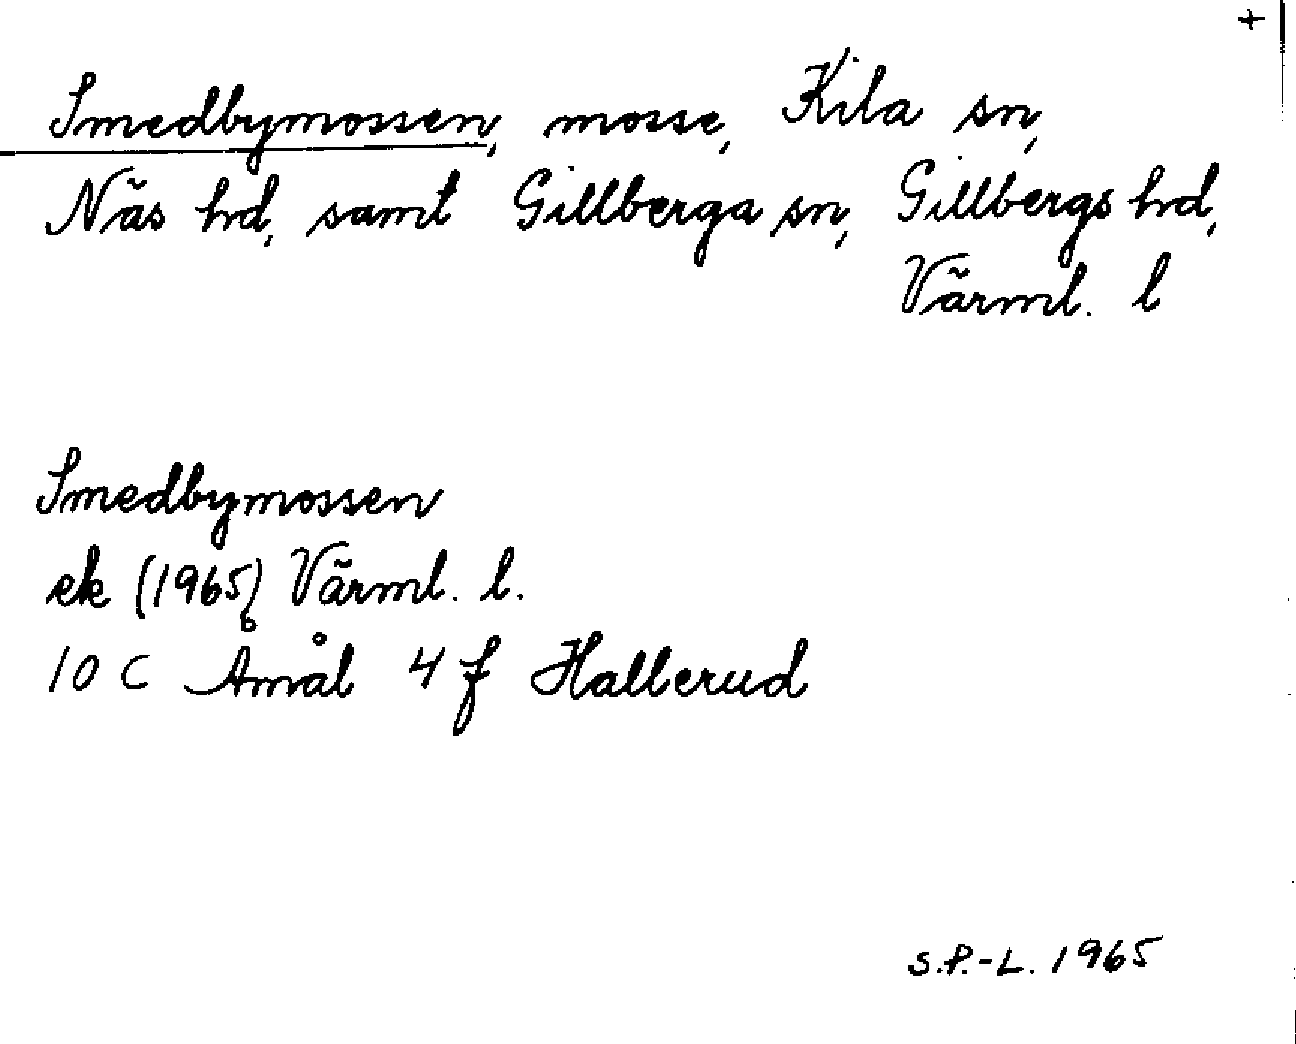 +
Smedbymossen, mosse, Kila sn,
Näs hd, samt Gillberga sn, Gillbergs hd,
Värml. l
Smedbymossen
ek (1965) Värml. l.
10 C Åmål 4 f Hallerud
S.P.-L. 1965